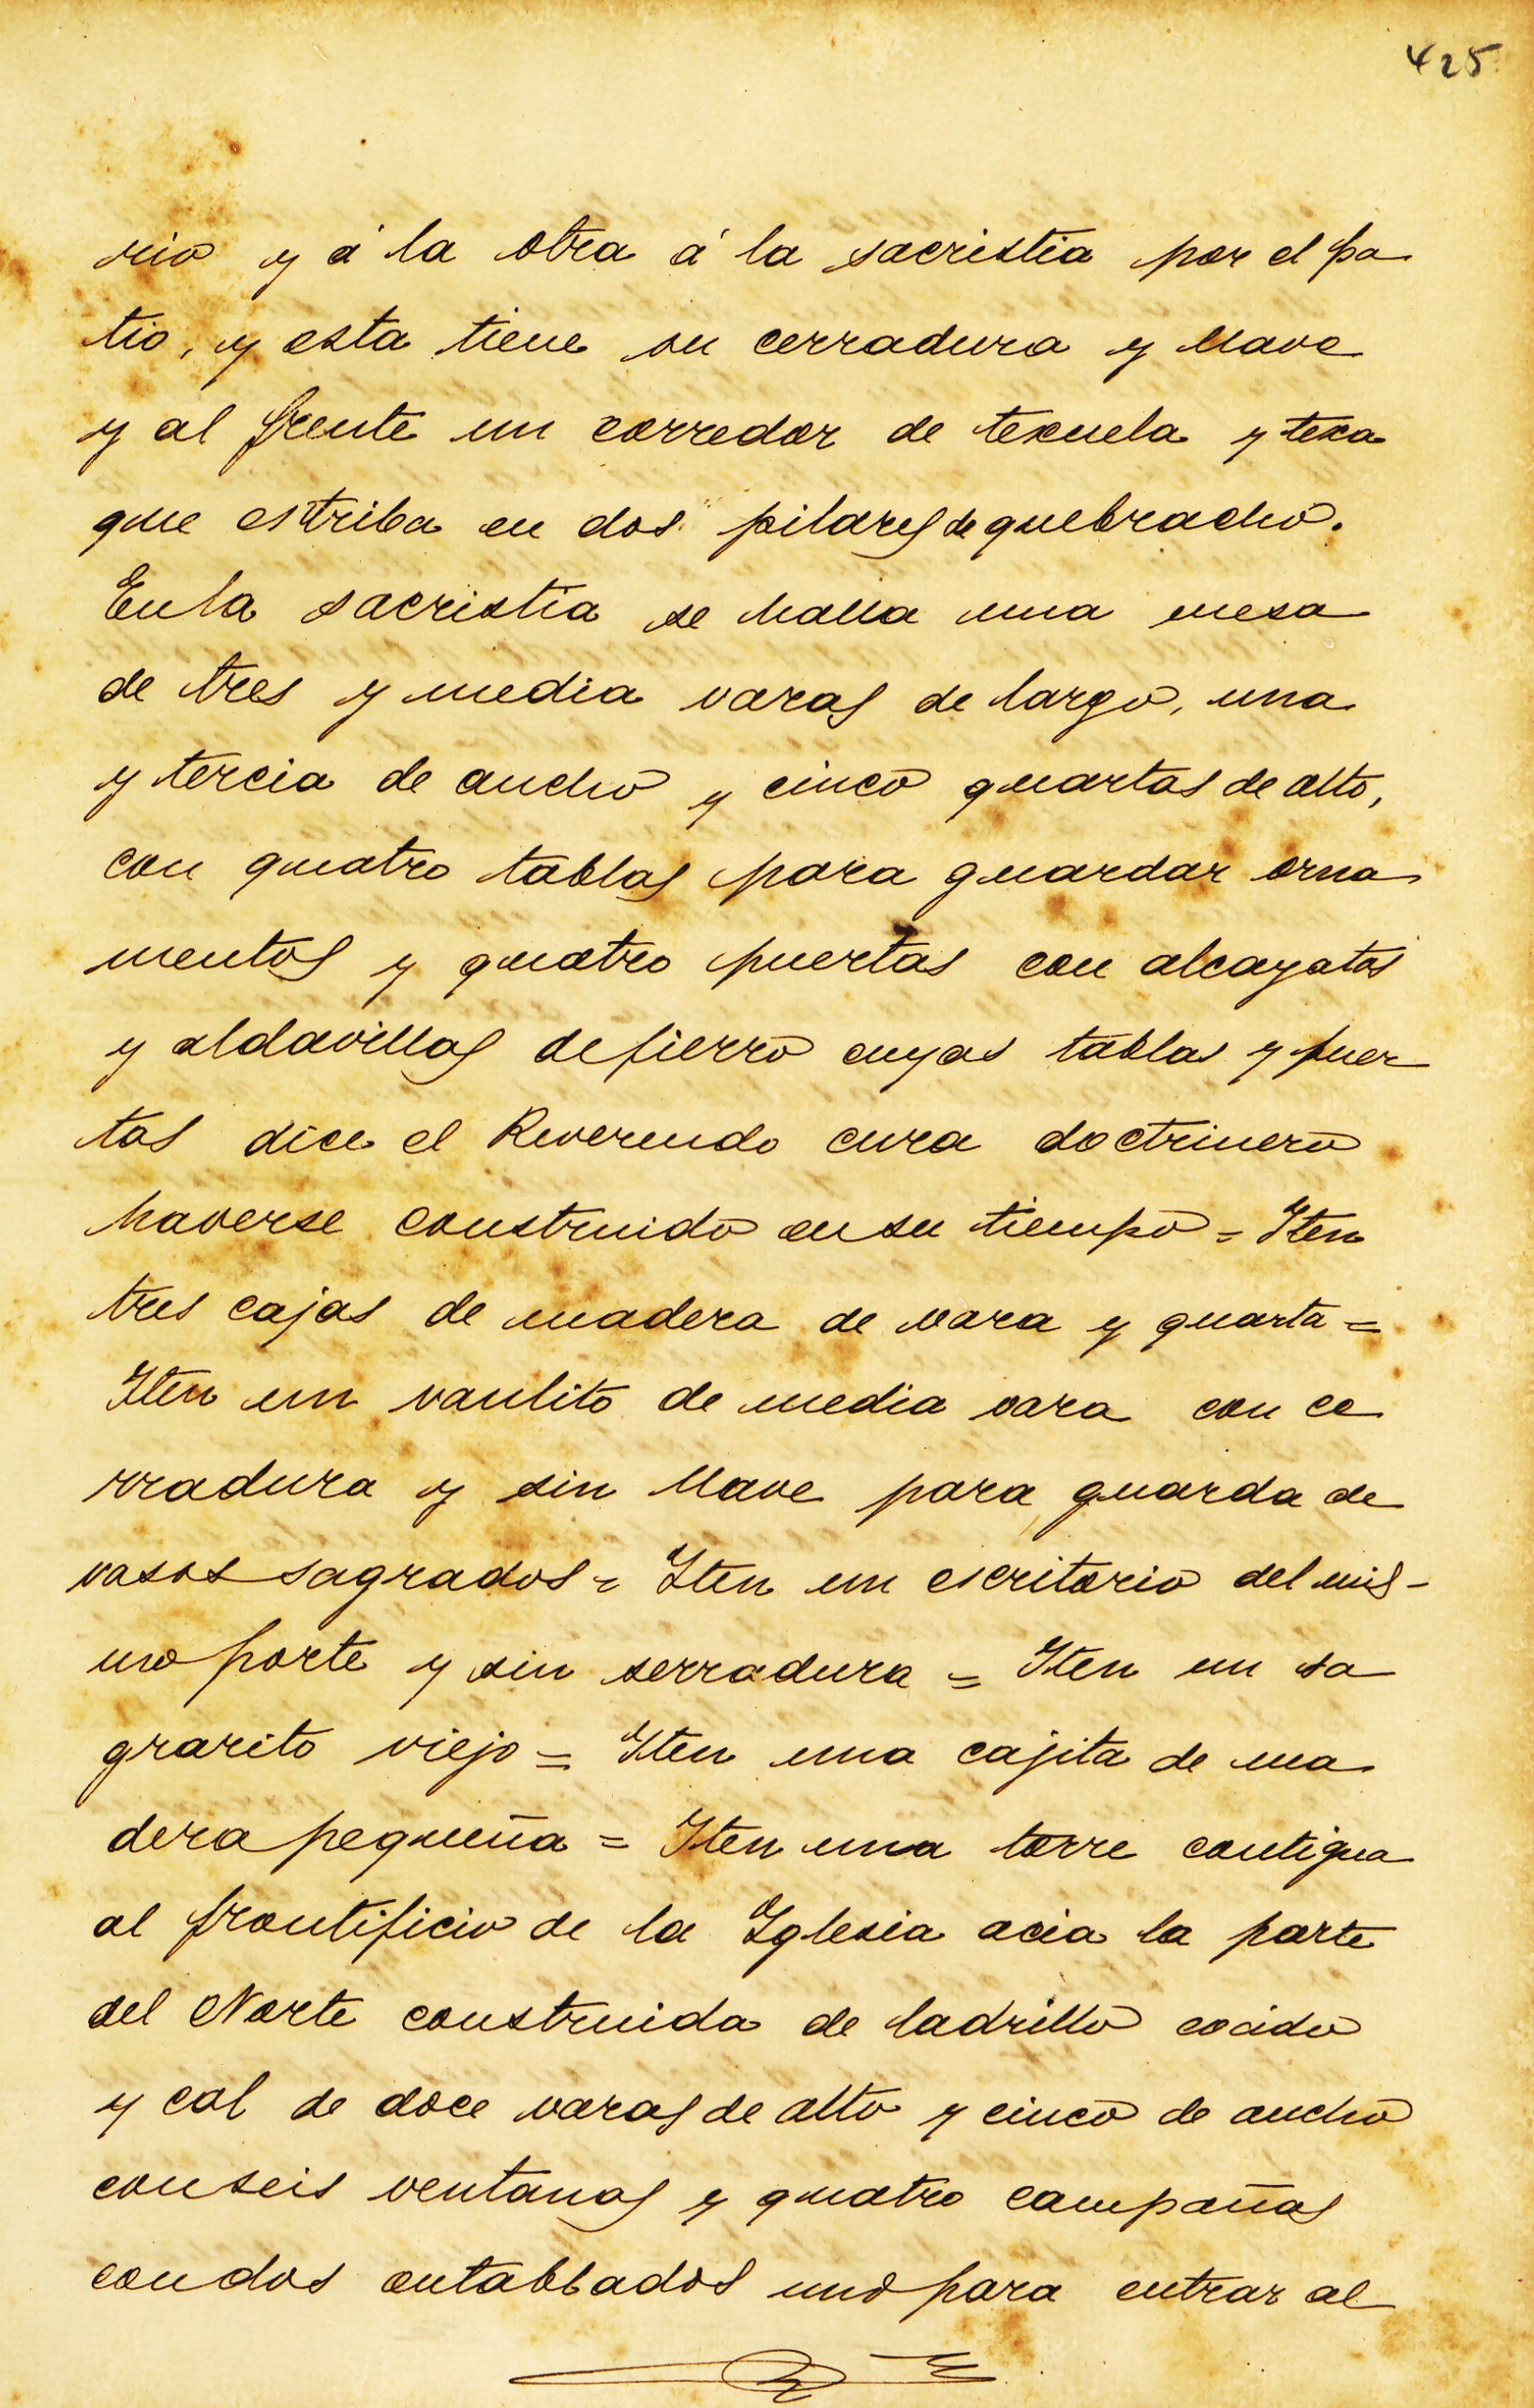 425
rio y á la otra á la sacristia por el pa
tio, y esta tiene su cerradura y llave
y al frente un corredor de texuela y texa
que estriba en dos pilares de quebracho.
En la sacristia se halla una mesa
de tres y media varas de largo, una
y tercia de ancho y cinco quartas de alto,
con quatro tablas para guardar orna
mentos y quatro puertas con alcayatas
y aldavillas de fierro cuyas tablas y puer
tas dice el Reverendo cura doctrinero
haverse construido en su tiempo = Iten
tres cajas de madera de vara y quarta =
Iten un vaulito de media vara con ce
rradura y sin llave para guarda de
vasos sagrados = Iten un escritorio del mis-
mo porte y sin serradura = Iten un sa
grarito viejo = Iten una cajita de ma
dera pequeña = Iten una torre contigua
al frontificio de la Iglesia acia la parte
del Norte construida de ladrillo cocido
y cal de doce varas de alto y cinco de ancho
con seis ventanas y quatro campañas
con dos entablados uno para entrar al